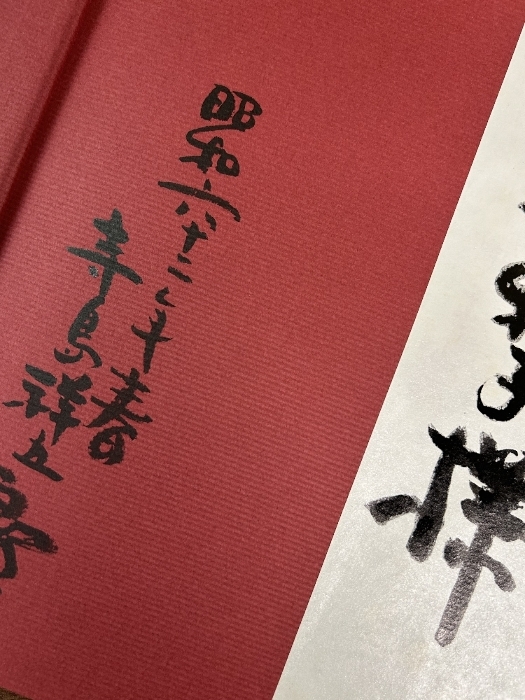 昭和六十二年春
寺島祥五郎